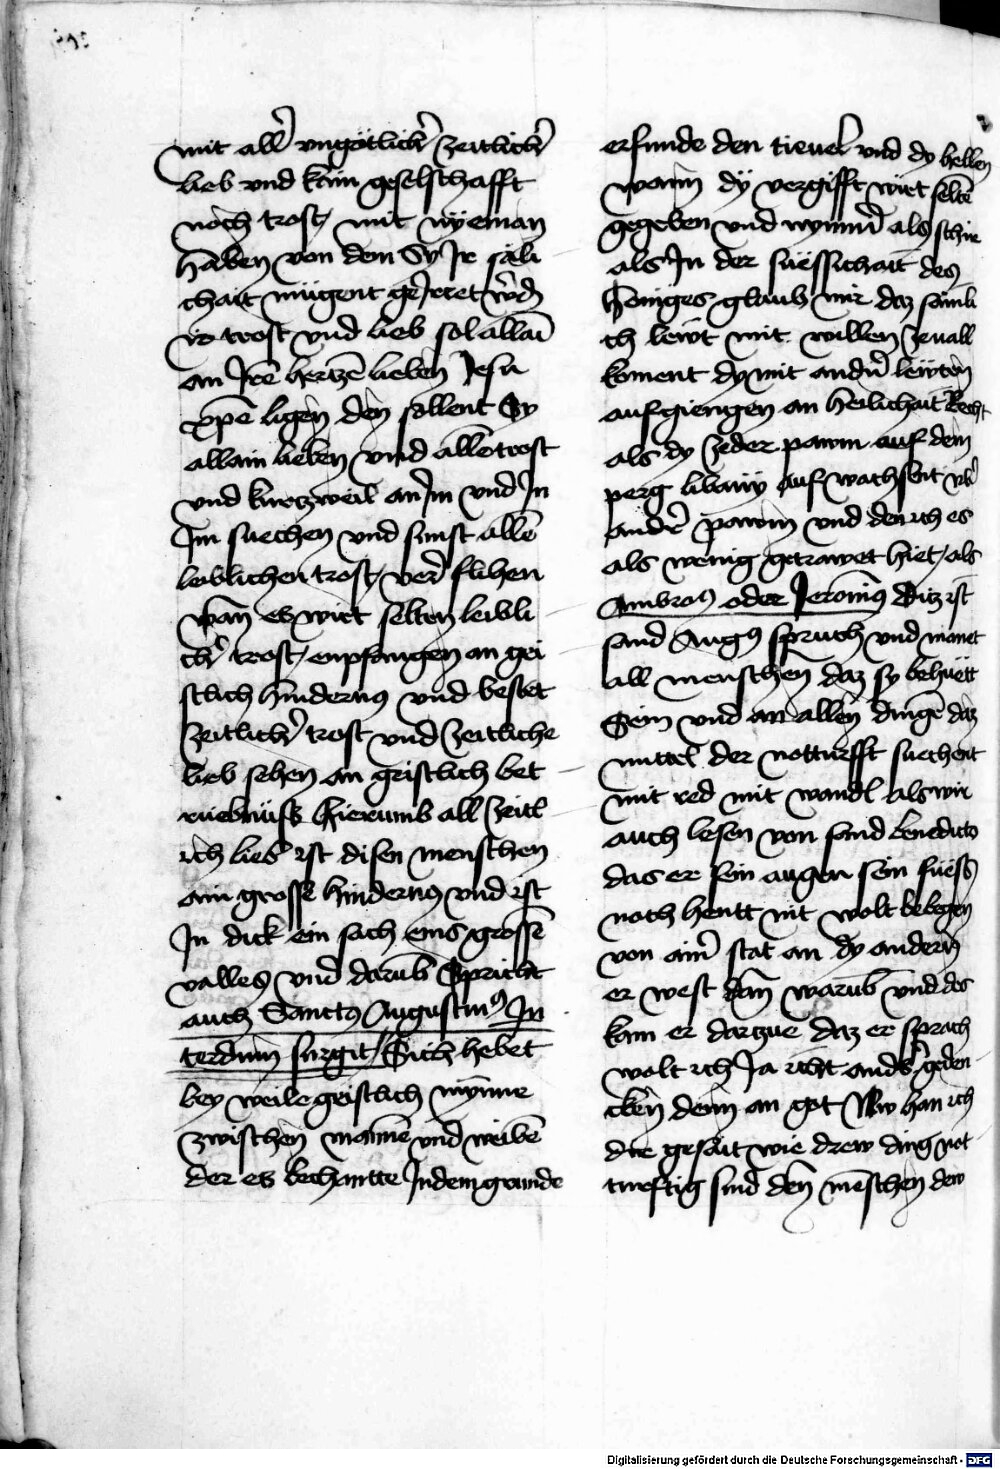 mit all&#x27; vngötlich&#x27; zeitlich&#x27;
lieb vnd kain geselschafft
noch trost mit nÿeman
haben von dem Sy Jr säli
chait mügent geJrret w&#x27;dn
ir trost vnd lieb sol allai̅
an Jrē hertzē lieben Jesu
xp̅e ligen den sollent Sy
allain lieben vnd allē trost
vnd kurtzweil an Jm vnd Jn
Jm suechen vnd sunst allē
leiblichen trost ver flihen
wan̅ es wirt selten leibli
ch&#x27; trost enpfangen an gei
stlich hindernus vnd
zeitlich&#x27; trost vnd zeitliche
lieb sehen an geistlich bet
rüebnüsß Hierumb all zeitl
ich lieb ist disen menschen
ain grosse hindernus vnd ist
Jn dick ein sach eins grossē
valles vnd darūb Spricht
auch Sanctus Augustin9 Jn
terdum surgit Sich hebet
bey weile geistlich mÿnne
zwischen mannē vnd weibē
der es bechantte Jn dem grunde
erfunde den tieuel vnd dy hellen
wann dÿ vergifft wirt seltē
gegeben vnd als schir
als Jn der süessichait des
Honiges glaub mir daz sämli
ch lewt mit willen
koment dy mit and&#x27;n lewten
aufgiengen an heilichait Recht
als dy zeder pawm auf dem
perg libany auf wachsent vb&#x27;
ander pawm vnd den ich es
als wenig getrawet hiet als
Ambros9 oder Jeronim9 Ditz ist
sand Aug9 spruch vnd manet
all menschen daz sy behuett
Sein vnd an allen dingē daz
mittel der notturfft suechent
mit red mit wandl als wir
auch lesen von sand benedicto
das er sein augen sein füess
noch hentt nit wolt bebegen
von aim&#x27; stat an dy andern
er west dan̅ warūb vnd des
kam er dartzue daz er sprach
wolt ich Ja icht anders geden
cken denn an got Nw han ich
dir gesait wie drew ding not
turftig sind den mēschen dew
Digitalisierung gefördert durch die Deutsche Forschungsgemeinschaft - DFG